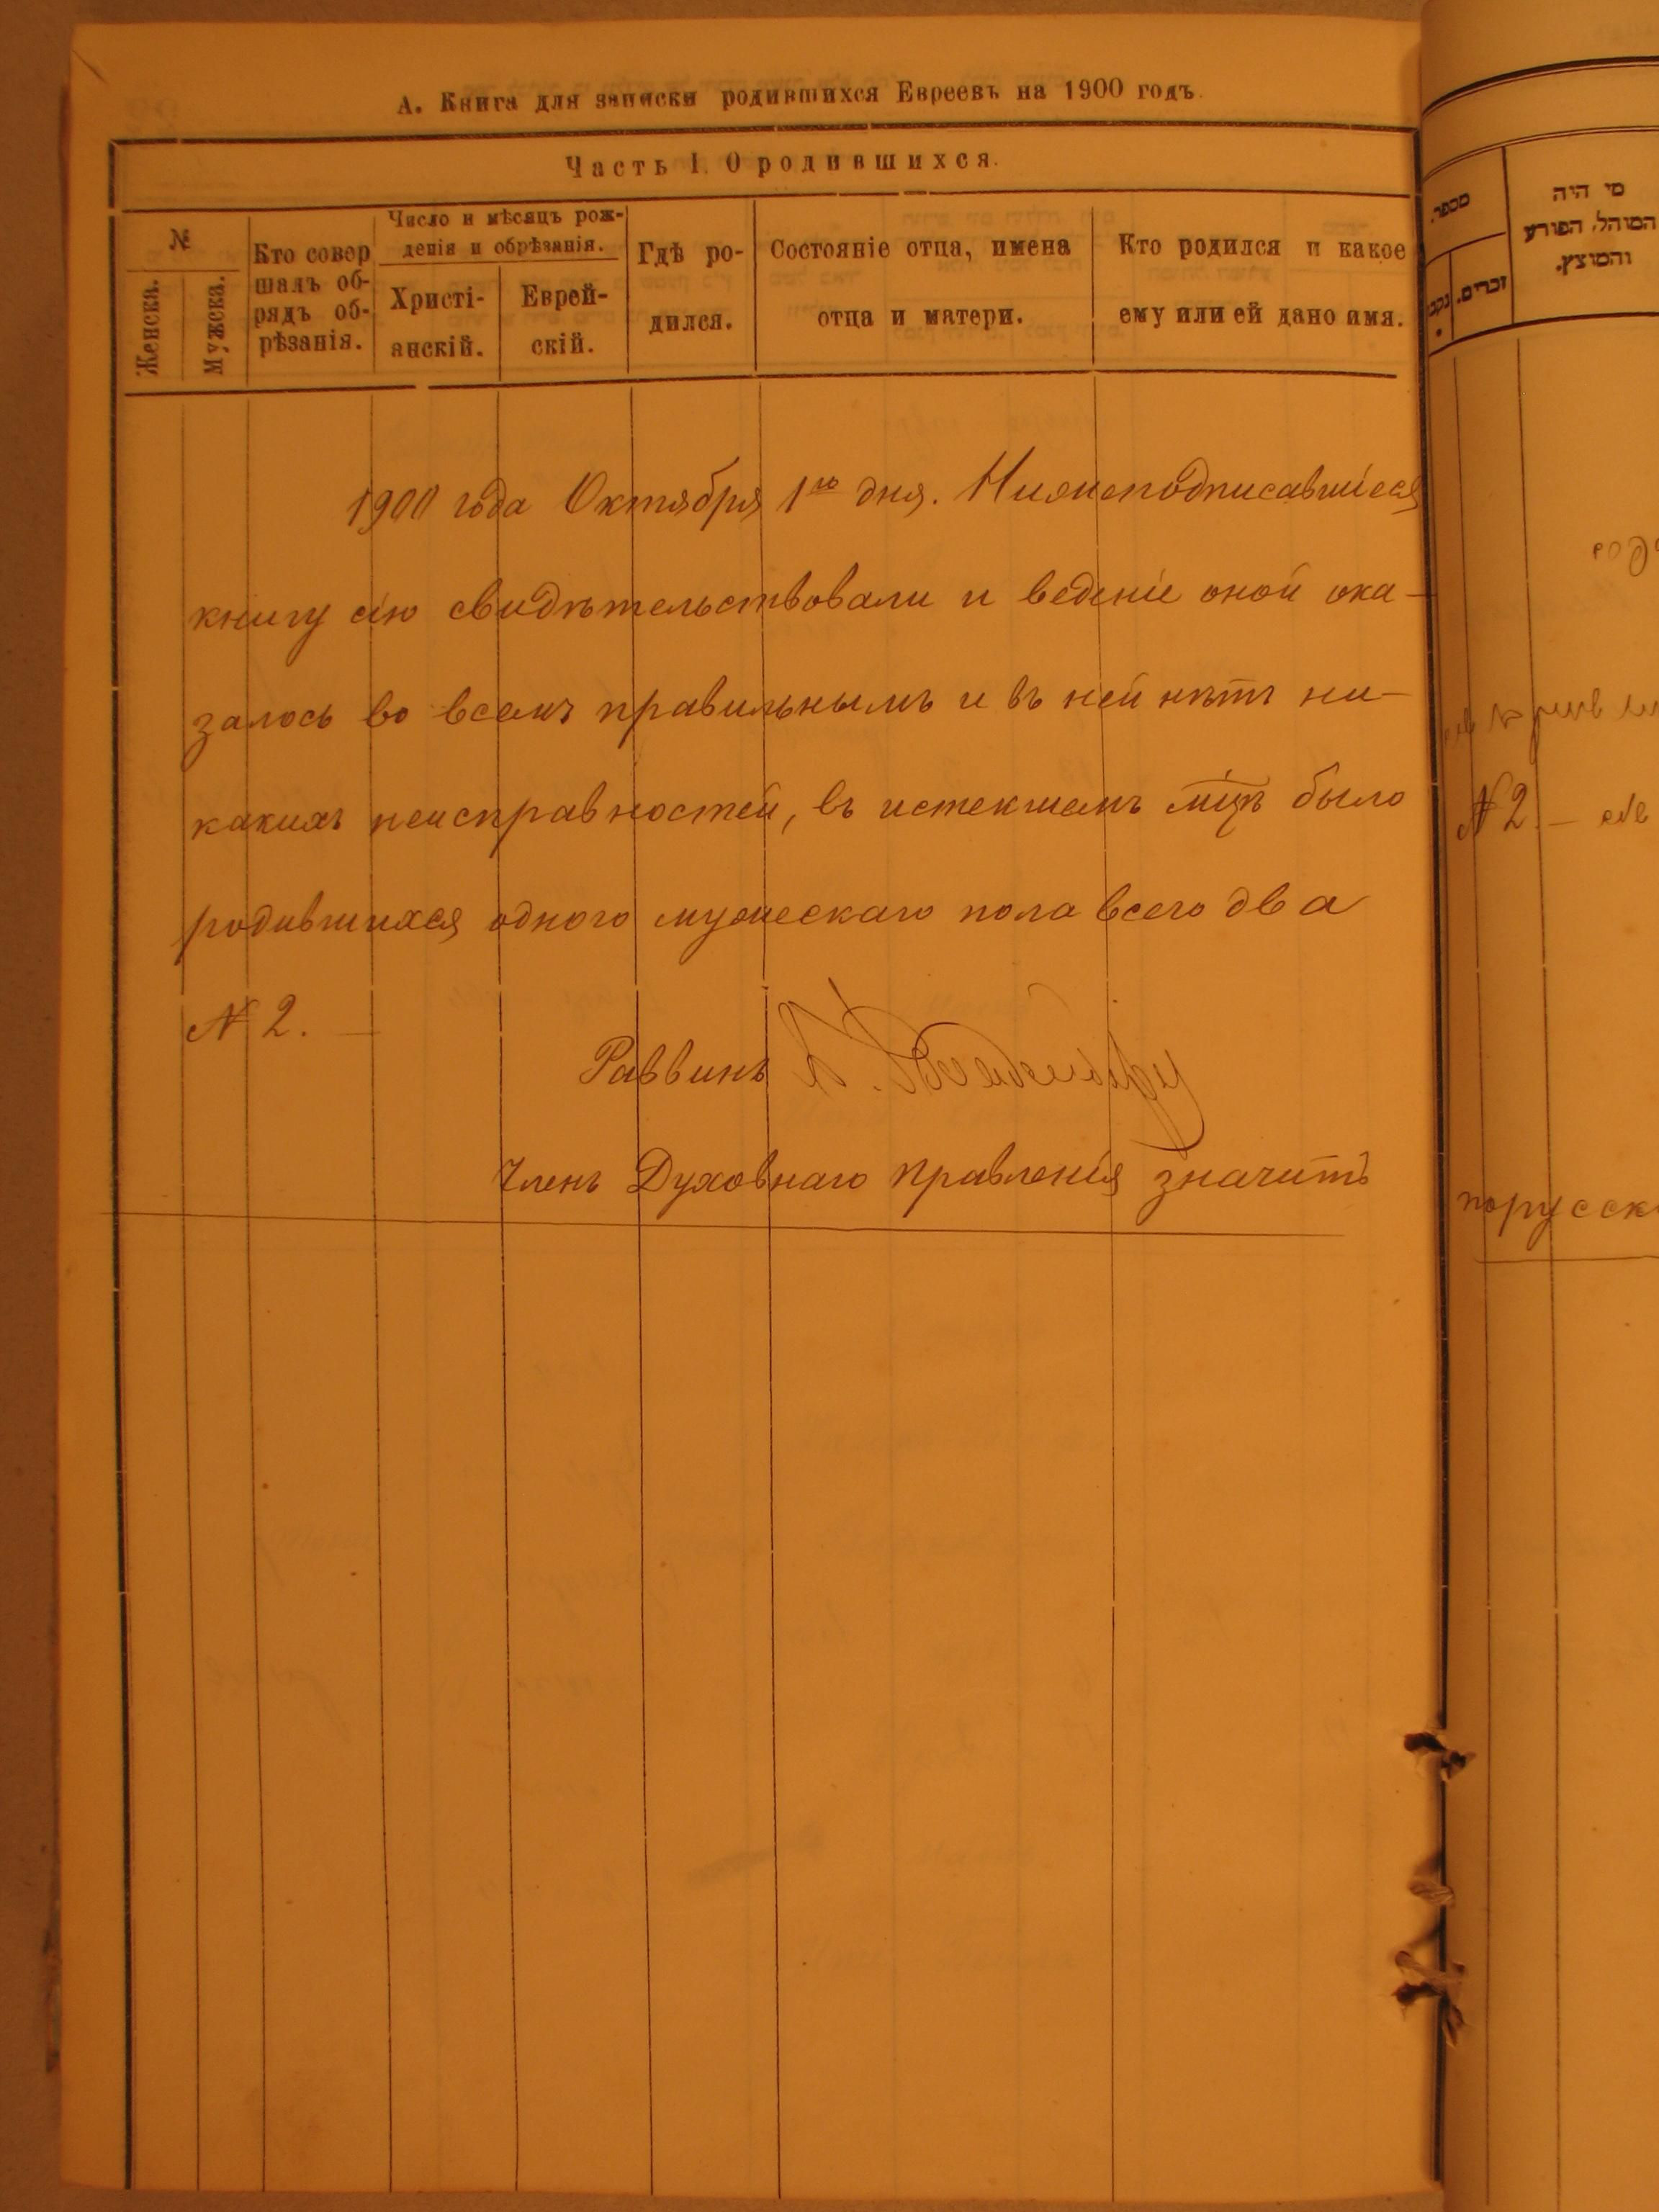 А. Книга для записки родившихся Евреевъ на 1900 годъ.
Часть I. О родившихся.
№
Женска.
Мужска.
Кто совер
шалъ об-
рядъ об-
рѣзанія.
Число и мѣсяцъ рож-
денія и обрѣзанія.
Христі-
анскій.
Еврей-
скій.
Гдѣ ро-
дился.
Состояніе отца, имена
отца и матери.
Кто родился и какое
ему или ей дано имя.
1900 года Октября 1го дня. Нижеподписавшіеся
книгу сію свидѣтельствовали и веденіе оной ока-
залось во всемъ правильнымъ и въ ней нѣтъ ни-
какихъ неисправностей, въ истекшемъ мцѣ было
родившихся одного мужескаго пола всего два
№ 2. —
Раввинъ
Членъ Духовнаго правленія значитъ
מספר.
זכרים.
מי היה
המוהל, הפורע
והמוצץ.
№ 2. —